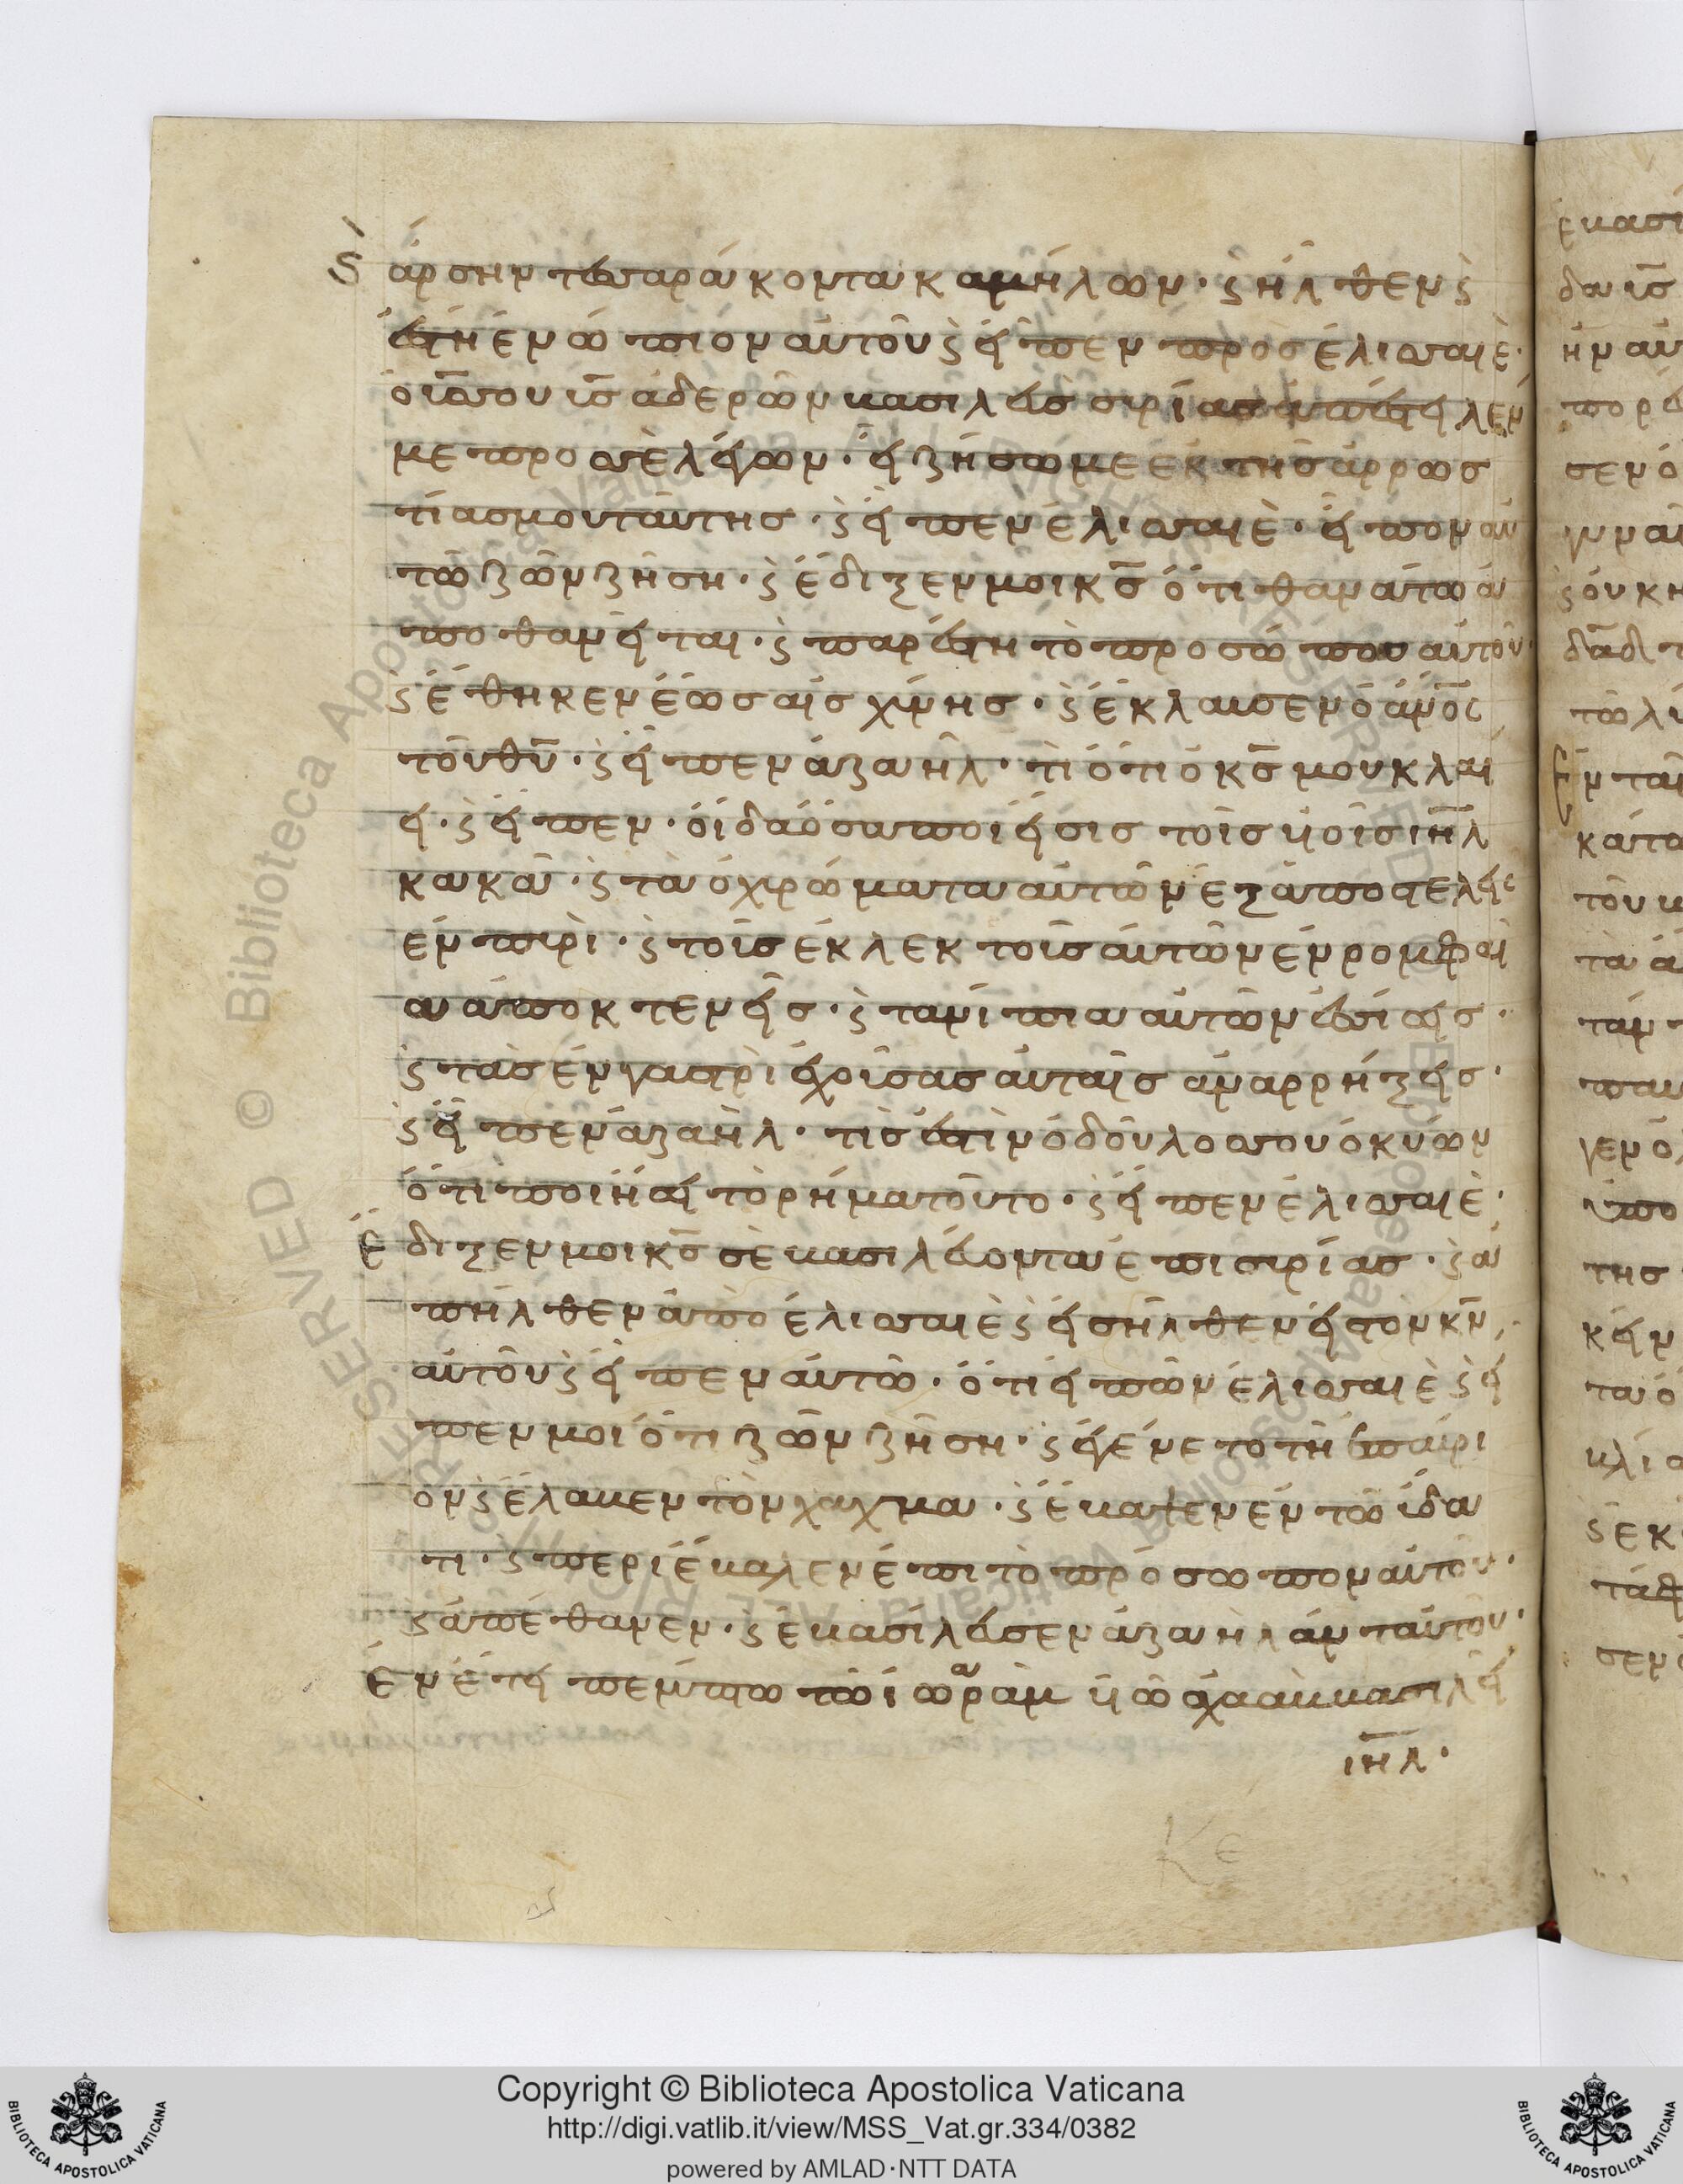 ἄρσην τεσσαράκοντα καμήλων· ϛ ἦλθεν ϛ
ἔστη ἐνώπιον αὐτοῦ ϛ εἶπεν πρὸς ἐλισσαιὲ·
ὁ υἱόσσου υἱσ ἄδερ ὧν βασιλεὺς συρίας ἀπέστειλέν
με πρόσσὲ λέγων· εἰ ζήσωμε ἐκ τῆς ἀρρωσ
τίασμου ταύτης· ϛ εἶπεν ἐλισσαιὲ· εἶπον αὐ
τῶ ζῶν ζήση· ϛ ἔδιξεν μοι κσ ὅτι θανάτω ἀ
ποθανεῖται· ϛ παρέστη τὸ προσώπου αὐτοῦ·
ϛ ἔθηκεν ἕως αἰσχύνης· ϛ ἔκλαυσεν ὁ ἄνοσ
τοῦ θυ· ϛ εἶπεν ἀζαήλ· τὶ ὅτι ὁ κσ μου κλαί
ει· ϛ εἶπεν· οἶδα ὅσα ποιήσις τοῖς υἱοῖς ιηλ
κακά· ϛ τὰ ὀχυρώματα αὐτῶν ἐξαποστελεῖς
ἐν πυρὶ· ϛ τοῖς ἐκλεκτοῖς αὐτῶν ἐν ρομφαί
α ἀποκτενεῖς· ϛ τα νίπια αὐτῶν ἐνσίσεις·
ϛ τὰς ἐν γαστρὶ ἐχούσας αὐταῖς ἀναρρήξεις·
ϛ εἶπεν ἀζαὴλ· τὶς ἐστὶν ὁ δοῦλόσσου ὁ κύων
ὅτι ποιήσει τὸ ρήμα τοῦτο· ϛ εἶπεν ἐλισσαιὲ·
ἔδιξέν μοι κσ σὲ βασιλεύοντα ἐπι συρίας· ϛ ἀ
πήλθεν ἀπὸ ἐλισσαιὲ ϛ εἰσήλθεν εἰστὸν κν
αὐτοῦ ϛ εἶπεν αὐτῶ· ὅτι εἰπῶν ἐλισσαιὲ ϛ εἶ
πέν μοι ὅτι ζῶν ζήση· ϛ ἐγένετο τῆ ἐπαύρι
ον ϛ ἔλαβεν τὸν χαχμα· ϛ ἔβαψεν ἐν τῶ ὕδα
τι· ϛ περιέβαλεν ἐπι τὸ πρόσωπον αὐτοῦ·
ϛ ἀπέθανεν· ϛ ἐβασίλευσεν ἀζαὴλ ἀντ αὐτοῦ·
ἐν ἔτει πέμπτω τῶ ἰωρὰμ υἱῶ ἀχαὰβ βασιλεῖ
ιηλ·
Κε
Copyright © Biblioteca Apostolica Vaticana
http://digi.vatlib.it/view/MSS_Vat.gr.334/0382
powered by AMLAD·NTT DATA
BIBLIOTECA APOSTOLICA VATICANA
BIBLIOTECA APOSTOLICA VATICANA